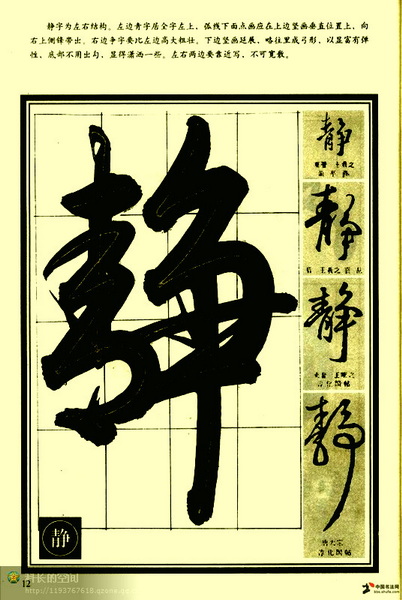 静字为左右结构。左边青字居全字左上,弧线下面点画应在上边竖画垂直位置上,向
右上侧锋带出。右边争字要比左边高大粗壮。下边竖画延展,略往里成弓形,以显富有弹
性,底部不用出勾,显得潇洒一些。左右两边要靠近写,不可宽散。
静
静
静
静
静
王羲之
王献之
淳化阁帖
唐太宗
淳化阁帖
静
12
科长的空间
http://1193767618.qzone.qq
中国书法网